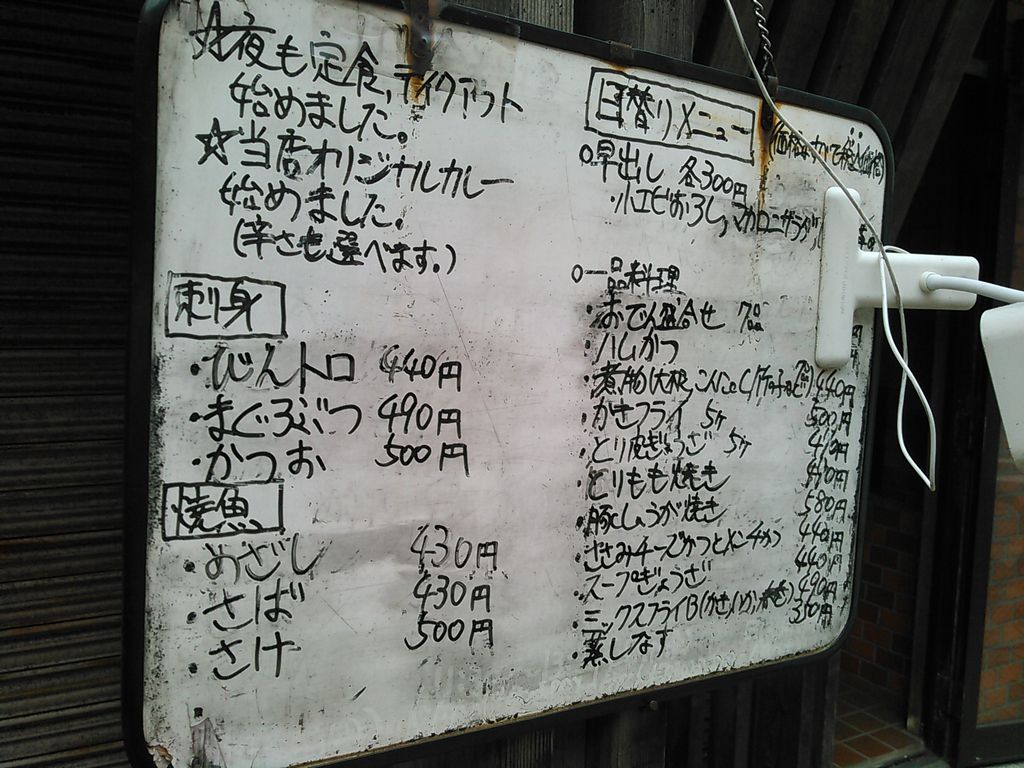 ☆夜も定食、テイクアウト
始めました。
☆当店オリジナルカレー
始めました。
(辛さも選べます。)
刺身
・びんトロ 440円
・まぐろぶつ 490円
・かつお 500円
焼魚
・めざし 430円
・さば 430円
・さけ 500円
日替りメニュー
(価格はすべて税込価格)
○早出し 各300円
・小エビおろし、マカロニサラダ
○一品料理
・おでん盛合せ
・ハムかつ 円
・煮物(大根、こんにゃく、竹の子など) 440円
・かきフライ 5ヶ 500円
・とり皮ぎょうざ 5ヶ 円
・とりもも焼き 円
・豚しょうが焼き 580円
・ささみチーズかつとメンチかつ 440円
・スープぎょうざ 440円
・ミックスフライB(かき、いか、) 490円
・蒸しなす 350円